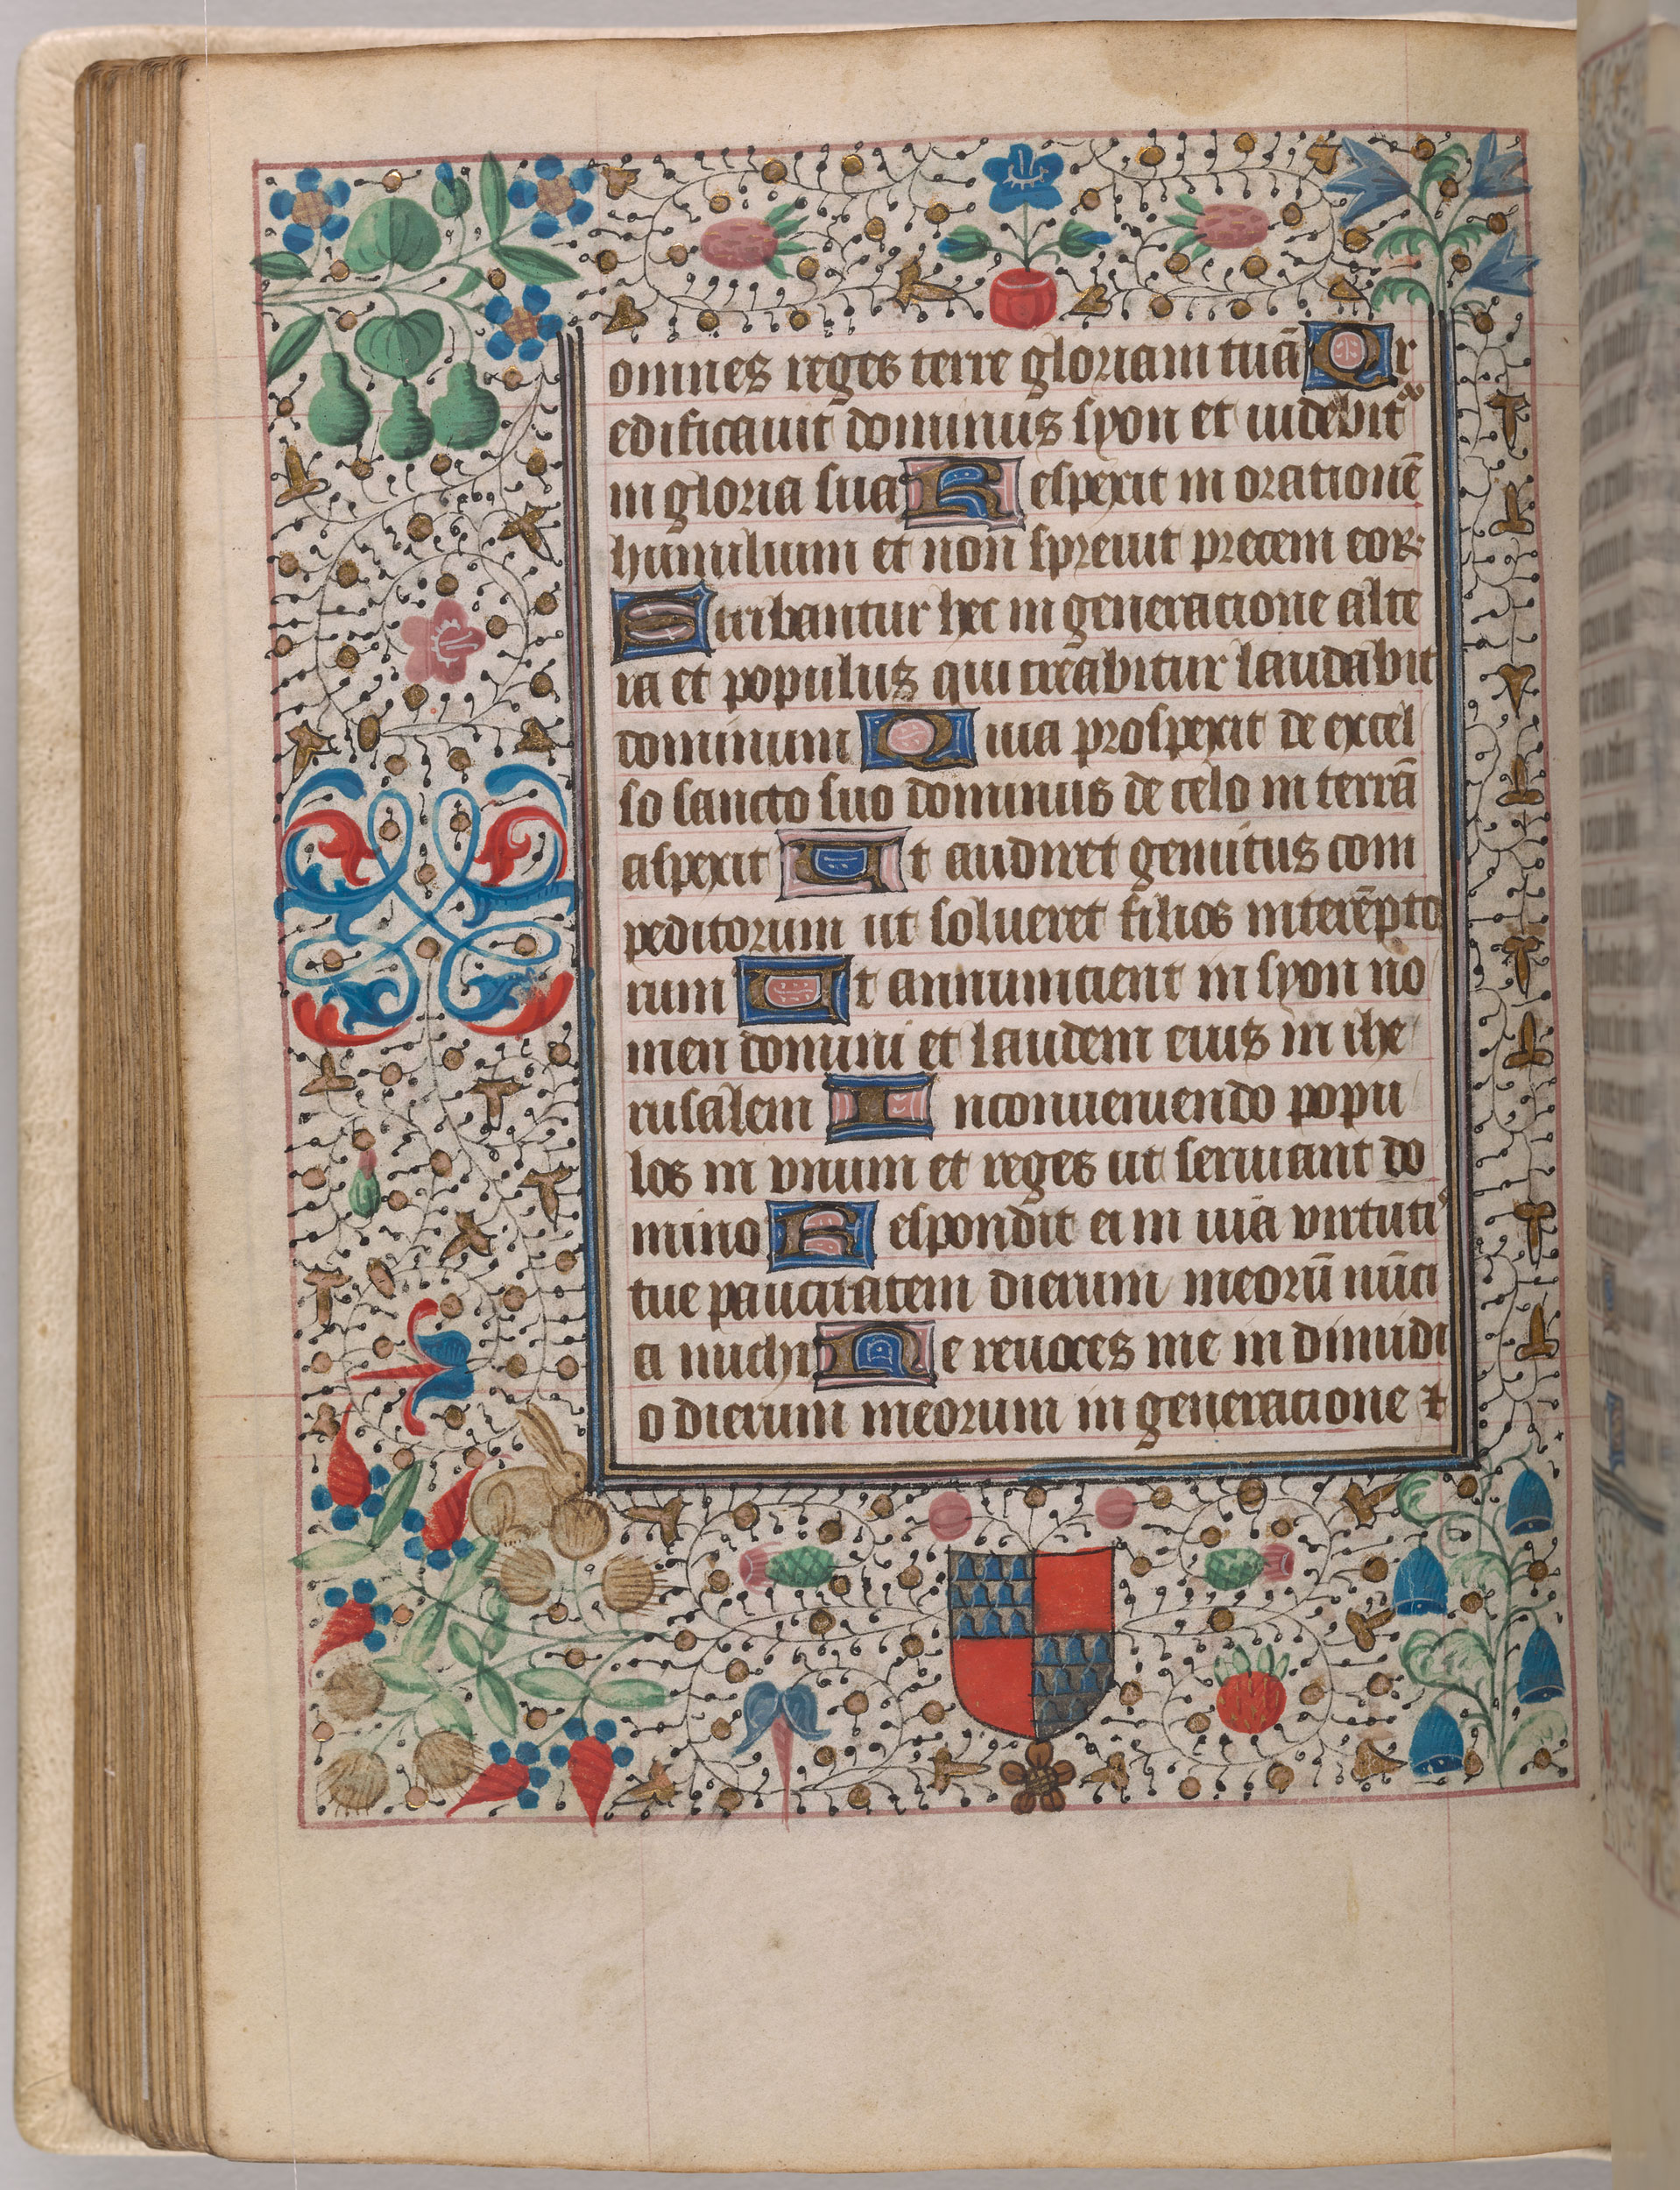 omnes reges terre gloriam tuā Qr
edificauit dominus syon et uidebit͛
in gloria sua Respexit in orationē
humilium et non spreuit precem eoꝝ
Scribantur hec in generacione alte
ra et populus qui creabitur laudabit
dominum Quia prospexit de excel
so sancto suo dominus de celo in terrā
aspexit Ut audiret gemitus com
peditorum ut solueret filios interēpto
rum Ut annuncient in syon no
men domini et laudem eius in ihe
rusalem In conueniendo popu
los in vnum et reges ut seruiant do
mino Respondit ei in uia virtutiˢ
tue paucitatem dierum meorū nūci
a michi Ne reuoces me in dimidi
o dierum meorum in generacione ⁊